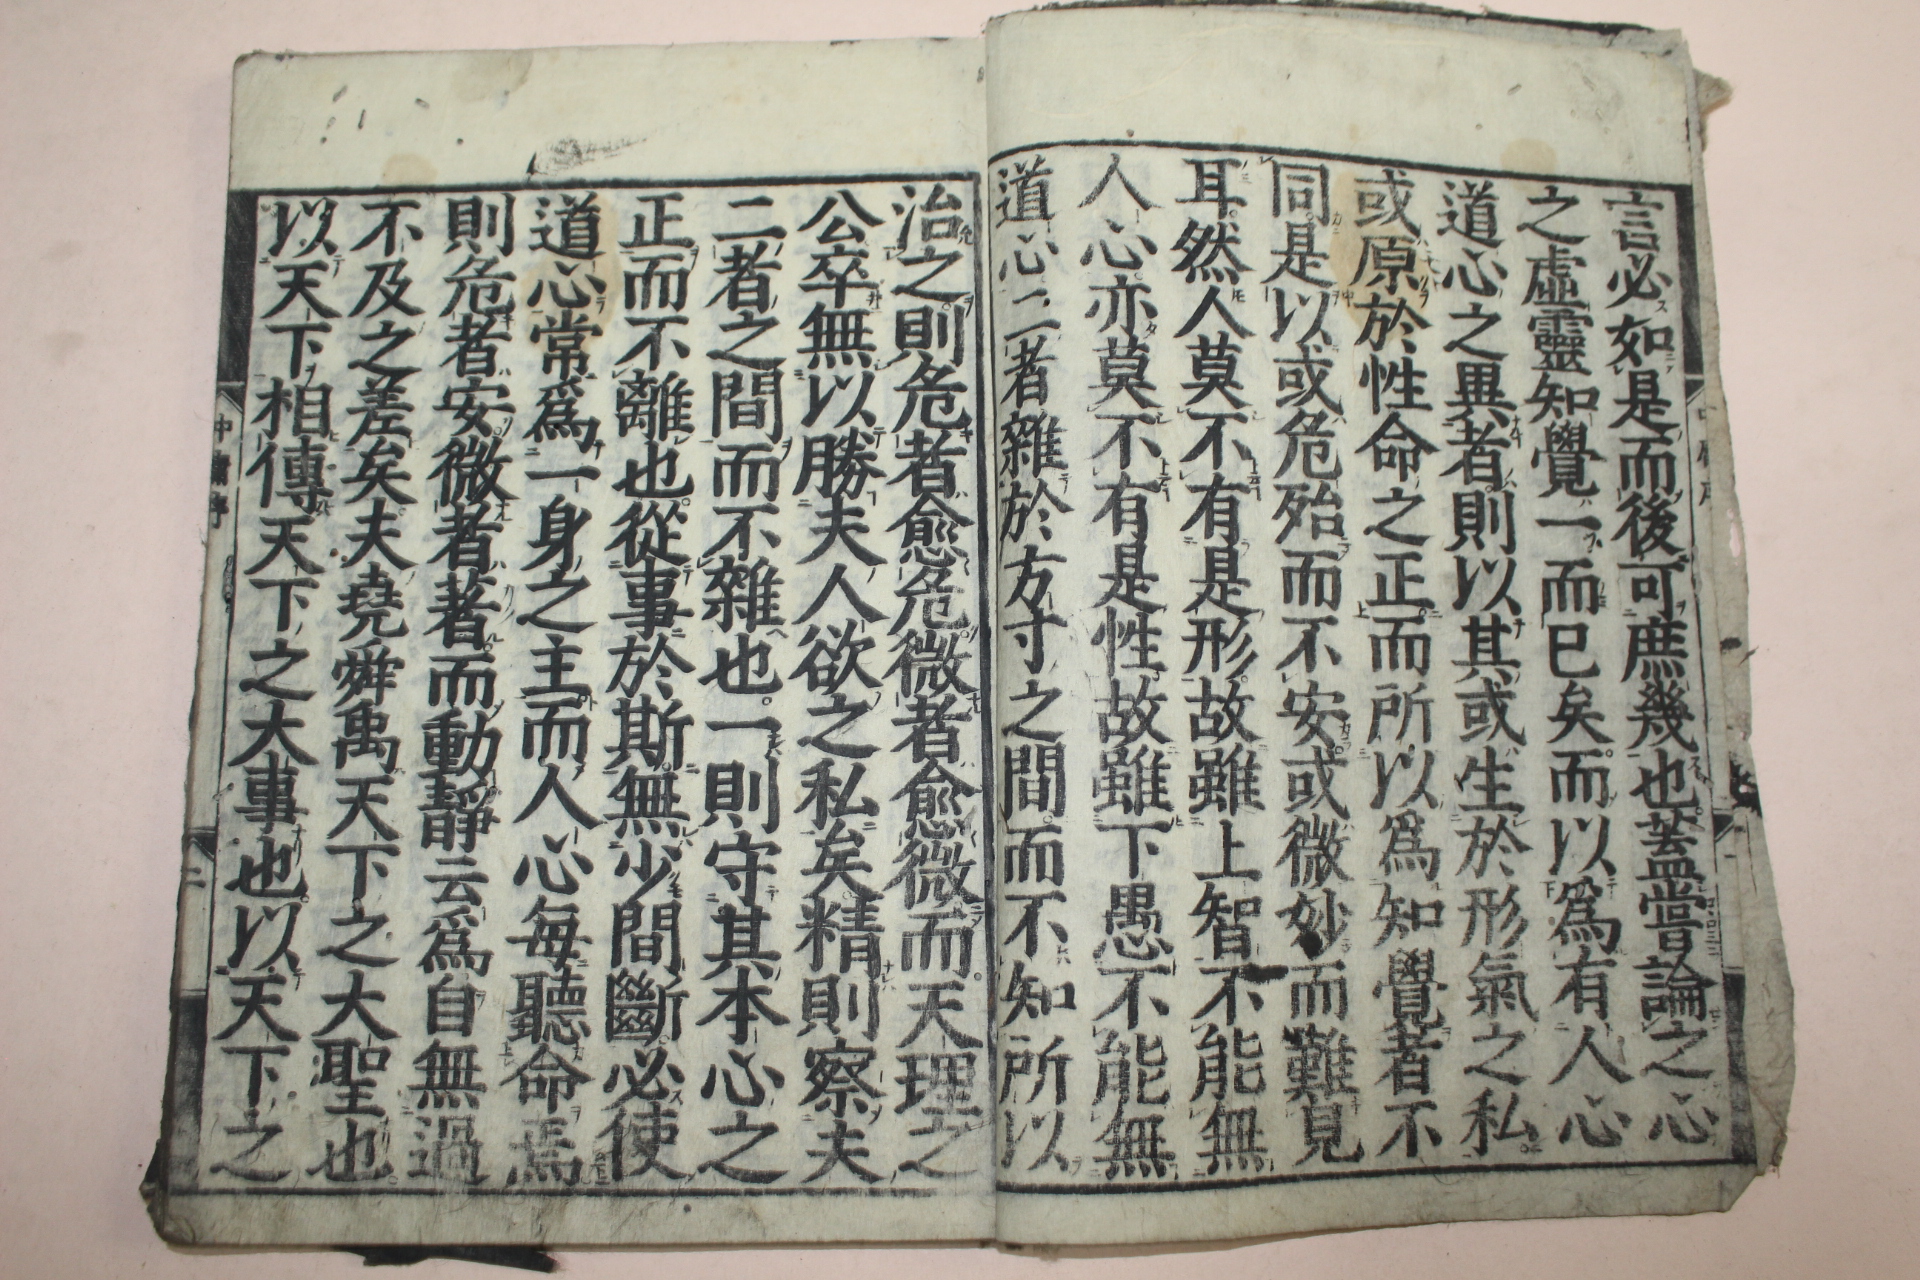 言必如是而後可庶幾也蓋嘗論之心
之虛靈知覺一而已矣而以爲有人心
道心之異者則以其或生於形氣之私
或原於性命之正而所以爲知覺者不
同是以或危殆而不安或微妙而難見
耳然人莫不有是形故雖上智不能無
人心亦莫不有是性故雖下愚不能無
道心二者雜於方寸之間而不知所以
治之則危者愈危微者愈微而天理之
公卒無以勝夫人欲之私矣精則察夫
二者之間而不雜也一則守其本心之
正而不離也從事於斯無少間斷必使
道心常爲一身之主而人心每聽命焉
則危者安微者著而動靜云爲自無過
不及之差矣夫堯舜禹天下之大聖也
以天下相傳天下之大事也以天下之
中庸序
二